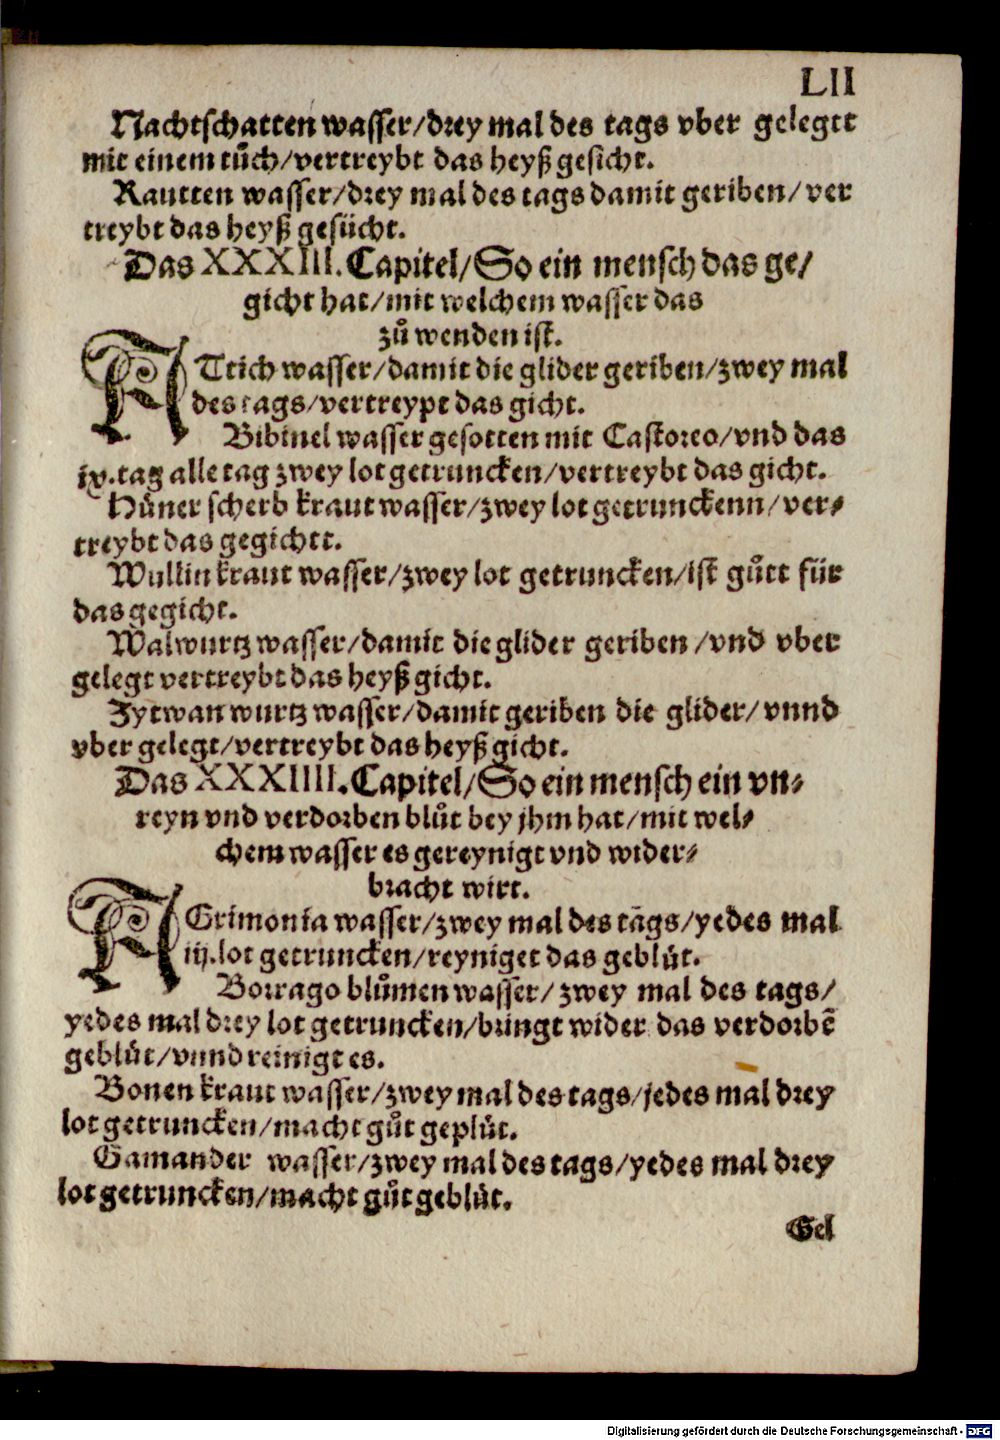 LII
Nachtschatten wasser/drey mal des tags vber gelegtt
mit einem tuͦch/vertreybt das heyß gesicht.
Rautten wasser/drey mal des tags damit geriben/ver
treybt das heyß gesücht.
Das XXXIII. Capitel/So ein mensch das ge/
gicht hat/mit welchem wasser das
zuͦ wenden ist.
ATtich wasser/damit die glider geriben/zwey mal
des tags/vertreypt das gicht.
Bibinel wasser gesotten mit Castoreo/vnd das
ix.tag alle tag zwey lot getruncken/vertreybt das gicht.
Huͤner scherb kraut wasser/zwey lot getrunckenn/ver-
treybt das gegichtt.
Wullin kraut wasser/zwey lot getruncken/ist guͦtt für
das gegicht.
Walwurtz wasser/damit die glider geriben/vnd vber
gelegt vertreybt das heyß gicht.
Zytwan wurtz wasser/damit geriben die glider/vnnd
vber gelegt/vertreybt das heyß gicht.
Das XXXIIII. Capitel/So ein mensch ein vn-
reyn vnd verdorben bluͦt bey jhm hat/mit wel-
chem wasser es gereynigt vnd wider-
bracht wirt.
AGrimonia wasser/zwey mal des tags/yedes mal
iij.lot getruncken/reyniget das gebluͤt.
Borrago bluͦmen wasser/zwey mal des tags/
yedes mal drey lot getruncken/bringt wider das verdorbē
gebluͤt/vnnd reinigt es.
Bonen kraut wasser/zwey mal des tags/jedes mal drey
lot getruncken/macht guͦt gepluͤt.
Gamander wasser/zwey mal des tags/yedes mal drey
lot getruncken/macht guͦt gebluͤt.
Gel
Digitalisierung gefördert durch die Deutsche Forschungsgemeinschaft - DFG